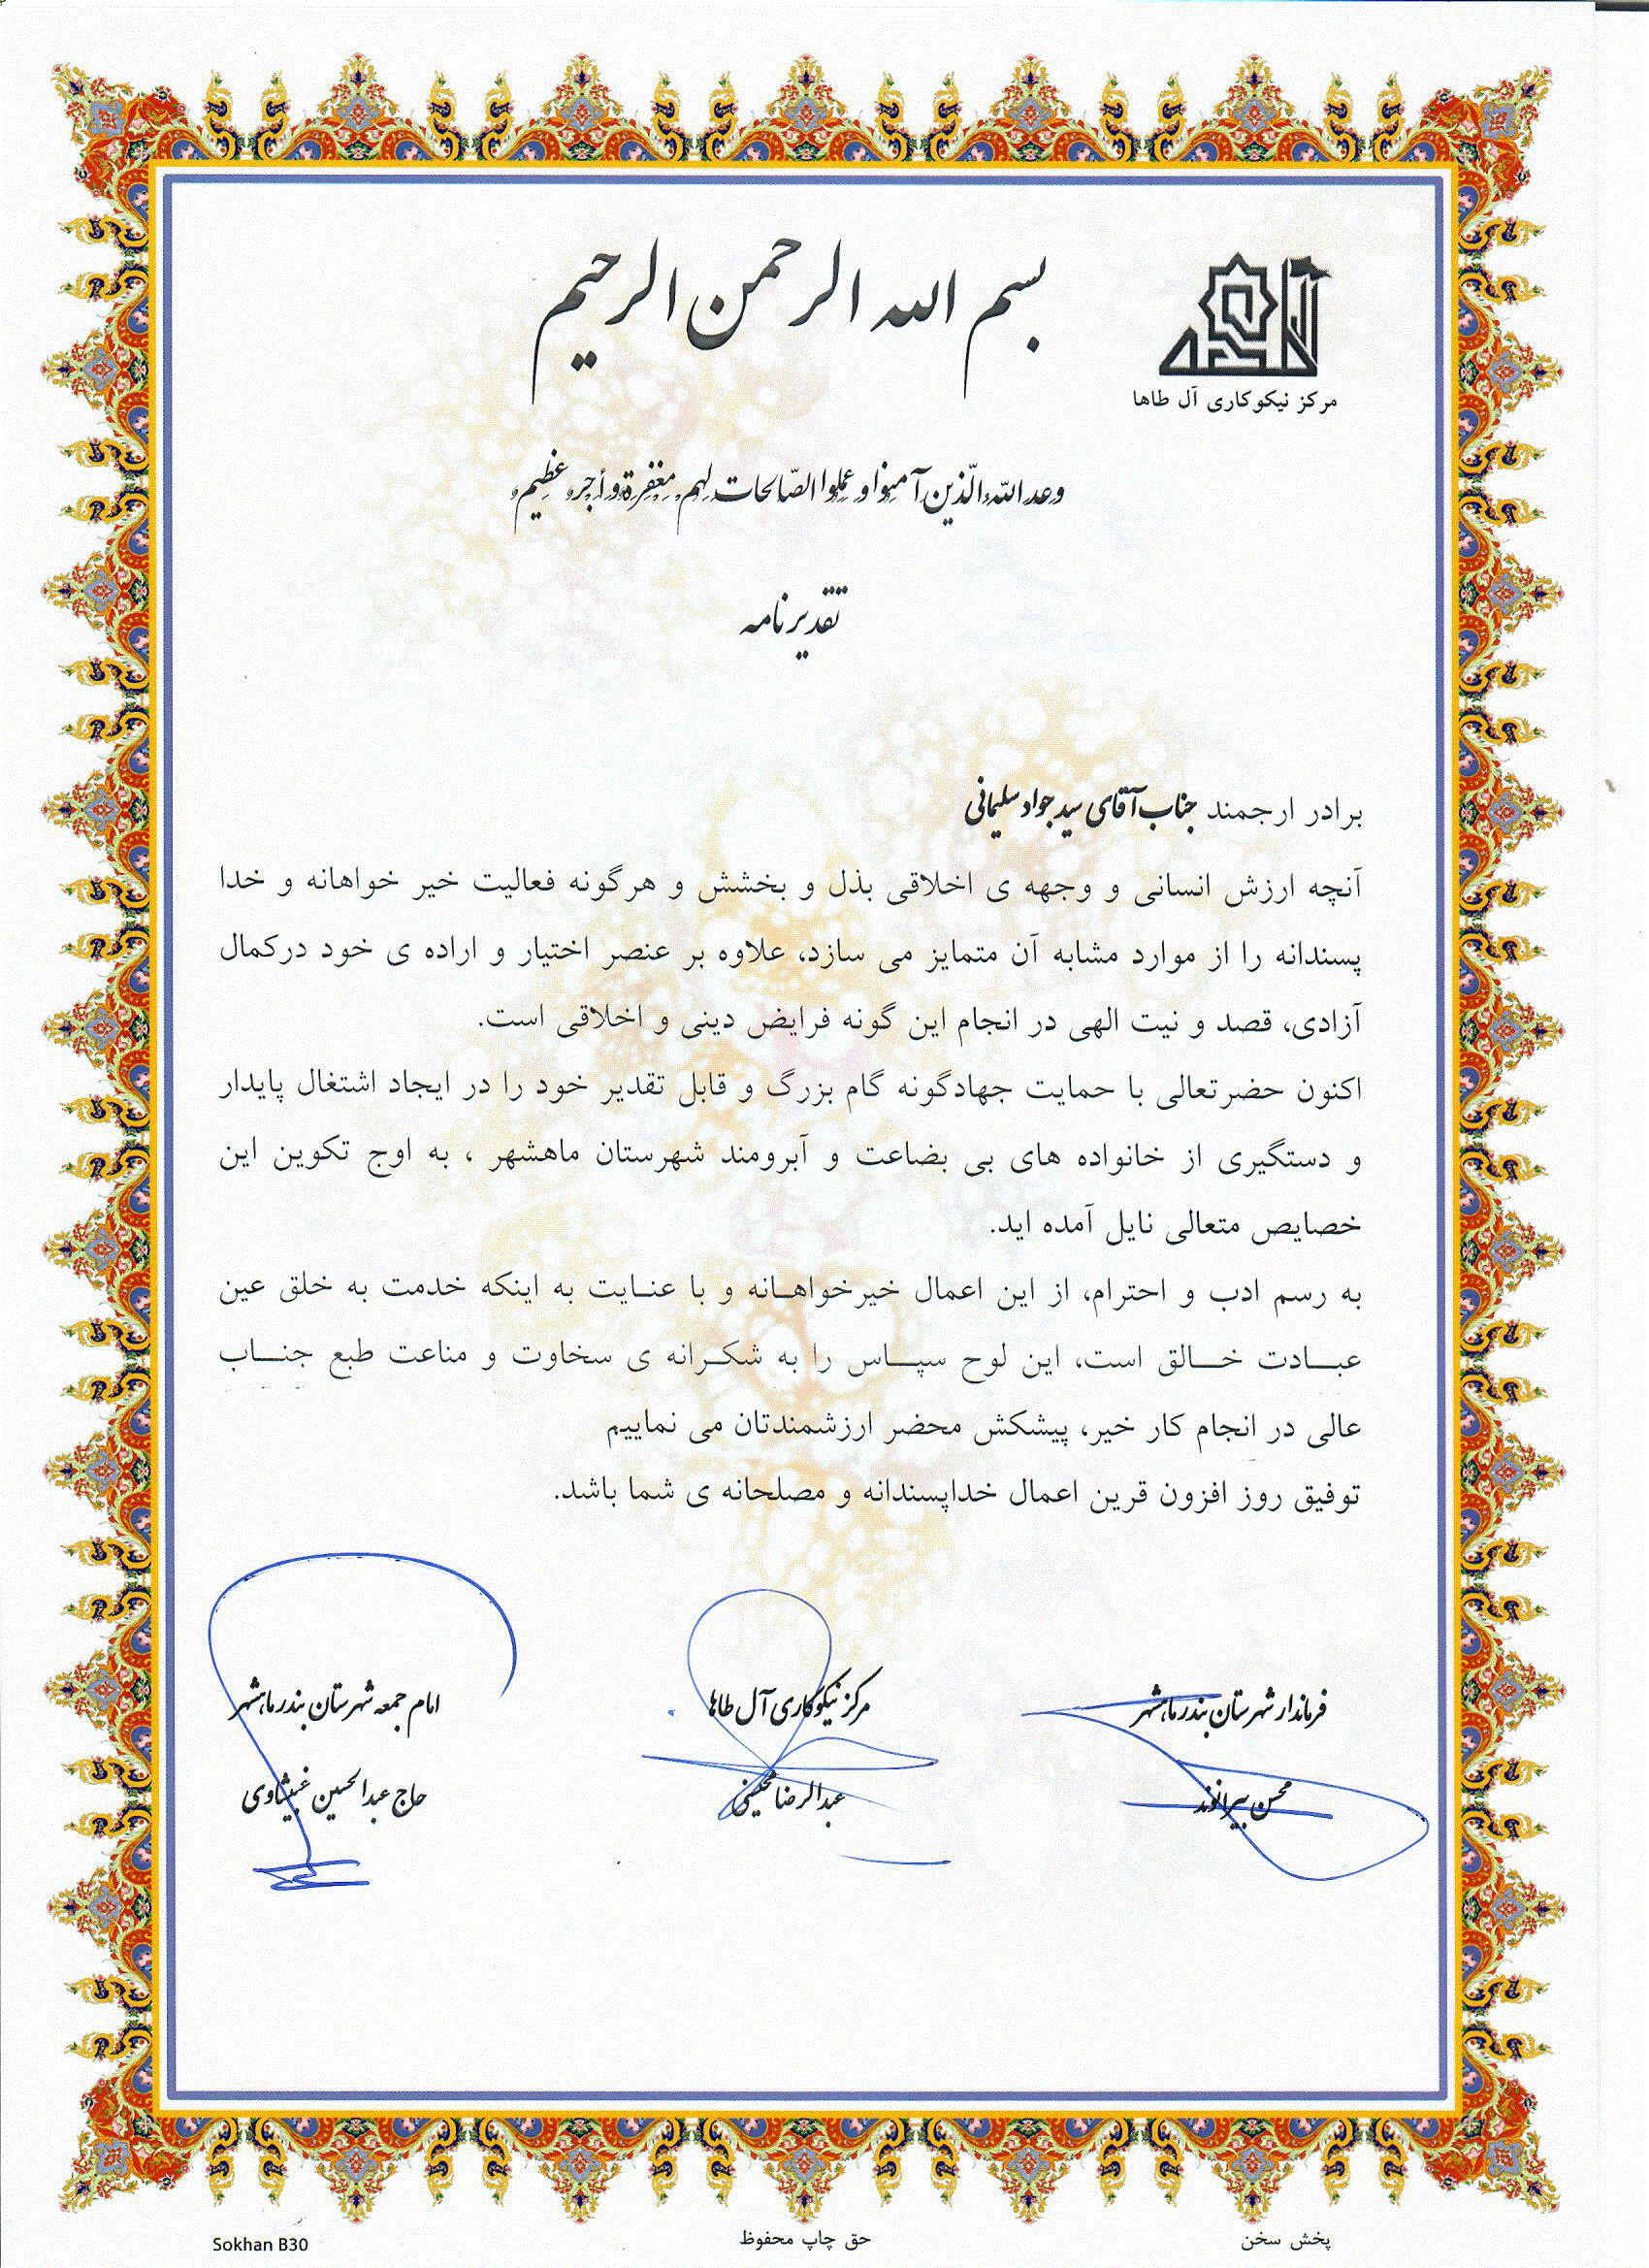 بسم الله الرحمن الرحیم
مرکز نیکوکاری آل طاها
وعد الله الّذین آمنوا و عملوا الصّالحات لهم مغفرة و أجر عظیم
تقدیرنامه
برادر ارجمند جناب آقای سید جواد سلیمانی
آنچه ارزش انسانی و وجهه ی اخلاقی بذل و بخشش و هرگونه فعالیت خیر خواهانه و خدا
پسندانه را از موارد مشابه آن متمایز می سازد، علاوه بر عنصر اختیار و اراده ی خود درکمال
آزادی، قصد و نیت الهی در انجام این گونه فرایض دینی و اخلاقی است.
اکنون حضرتعالی با حمایت جهادگونه گام بزرگ و قابل تقدیر خود را در ایجاد اشتغال پایدار
و دستگیری از خانواده های بی بضاعت و آبرومند شهرستان ماهشهر ، به اوج تکوین این
خصایص متعالی نایل آمده اید.
به رسم ادب و احترام، از این اعمال خیرخواهـانه و با عنـایت به اینکه خدمت به خلق عین
عبـــادت خـــالق است، این لوح سپـــاس را به شکـرانه ی سخاوت و مناعت طبع جنـــاب
عالی در انجام کار خیر، پیشکش محضر ارزشمندتان می نماییم
توفیق روز افزون قرین اعمال خداپسندانه و مصلحانه ی شما باشد.
فرماندار شهرستان بندرماهشهر
مرکز نیکوکاری آل طاها
امام جمعه شهرستان بندرماهشهر
محسن بیرانوند
عبدالرضا
حاج عبدالحسین غبیشاوی
پخش سخن
حق چاپ محفوظ
Sokhan B30